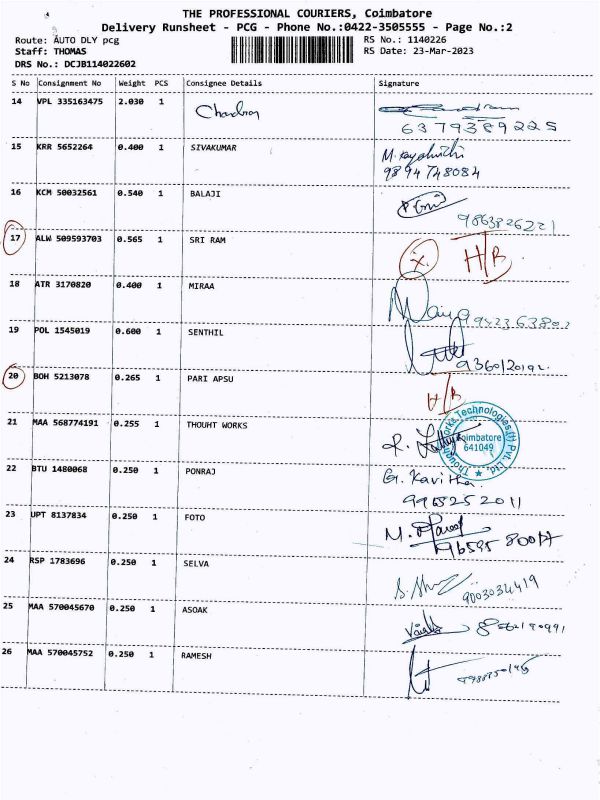 THE PROFESSIONAL COURIERS, Coimbatore
Delivery Runsheet - PCG - Phone No.:0422-3505555 - Page No.:2
Route: AUTO DLY pcg
Staff: THOMAS
DRS No.: DCJB114022602
RS No.: 1140226
RS Date: 23-Mar-2023
S No Consignment No Weight PCS Consignee Details Signature
14 VPL 335163475 2.030 1 Chandran
6379389225
15 KRR 5652264 0.400 1 SIVAKUMAR
9894748084
16 KCM 50032561 0.540 1 BALAJI
9863826221
17 ALW 509593703 0.565 1 SRI RAM H/B
18 ATR 3170820 0.400 1 MIRAA
19 POL 1545019 0.600 1 SENTHIL
20 BOH 5213078 0.265 1 PARI APSU H/B
21 MAA 568774191 0.255 1 THOUHT WORKS
Coimbatore
641049
22 BTU 1480068 0.250 1 PONRAJ G. Kavitha
9965252011
23 UPT 8137834 0.250 1 FOTO
24 RSP 1783696 0.250 1 SELVA
9003034419
25 MAA 570045670 0.250 1 ASOAK
26 MAA 570045752 0.250 1 RAMESH